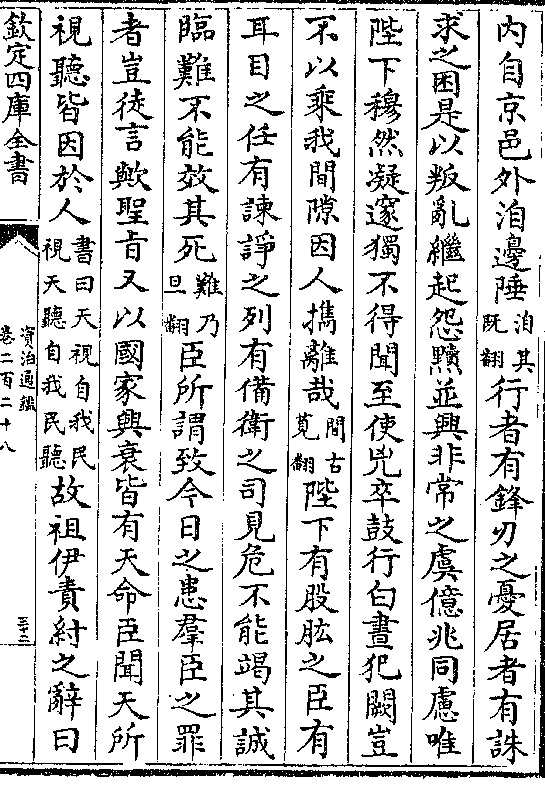 內自京邑外洎邊陲洎其旣翻行者有鋒刃之憂居者有誅
求之困是以叛亂繼起怨讟並興非常之虞億兆同慮唯
陛下穆然凝邃獨不得聞至使兇卒鼓行白晝犯闕豈
不以乘我間隙因人攜離哉間古莧翻陛下有股肱之臣有
耳目之任有諫諍之列有備衛之司見危不能竭其誠
臨難不能效其死難乃旦翻臣所謂致今日之患羣臣之罪
者豈徒言歟聖旨又以國家興衰皆有天命臣聞天所
視聽皆因於人書曰天視自我民視天聽自我民聽故祖伊責紂之辭曰
欽定四庫全書
資治通鑑
卷二百二十八
三十三